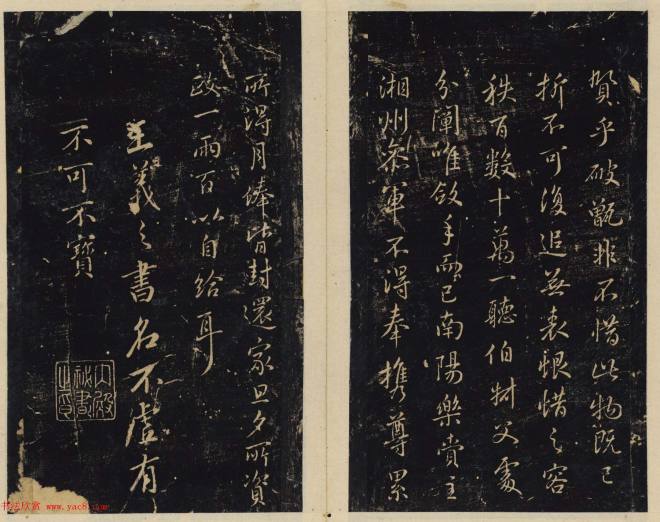 賀乎破甑非不惜此物既已
折不可復追無表恨惜之容
秩百数十萬一聽伯父處
分闡唯斂手而已南陽樂賞主
湘州參軍不得奉攜尊累
所得月俸皆封還家旦夕所資
政一兩百以自給耳
王羲之書名不虛有
一不可不寶
内殿
秘書
之印
书法欣赏 www.yac8.com